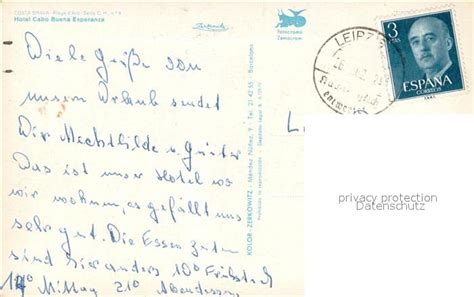 COSTA BRAVA - Playa d'Aro - Serie C.H. nº 4
Hotel Cabo Buena Esperanza
Zerkowitz
FOTOCROMO
ZERKOWITZ
Viele Grüße von
unserem Urlaub sendet
Dir Mechthilde u. Günter
Das ist unser Hotel wo
wir wohnen, es gefällt uns
sehr gut. Die Essen zeiten
sind hier anders 10⁰⁰ Frühstück
14⁰⁰ Mittag 21⁰ Abendessen
KOLOR-ZERKOWITZ - Méndez Núñez, 7 - Tel. 21 42 55 - Barcelona
Prohibida la reproducción
LEIPZIG
3
PTAS
ESPAÑA
CORREOS
L
privacy protection
Datenschutz